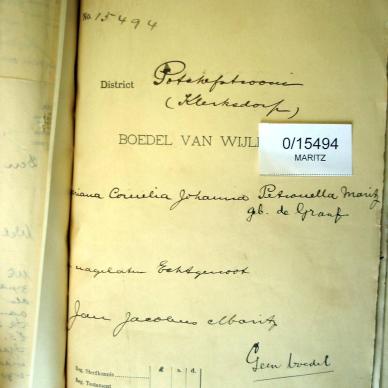 No. 15494
District Potchefstroom
(Klerksdorp)
BOEDEL VAN WIJL
0/15494
MARITZ
riana Cornelia Johanna Petronella Maritz
gb. de Graaf
nagelaten Echtgenoot
Jan Jacobus Maritz
Gem boedel
Reg. Sterfkennis
Reg. Testament